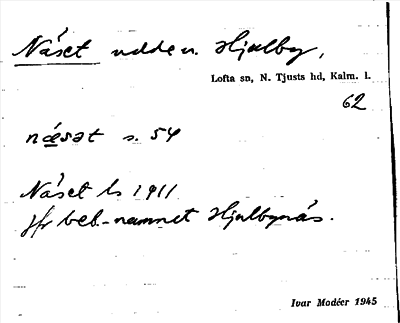 Näset udde v. Hjulby,
Lofta sn, N. Tjusts hd, Kalm. l.
62
næsət s. 54
Näset ls 1911
jfr beb.-namnet Hjulbynäs.
Ivar Modéer 1945